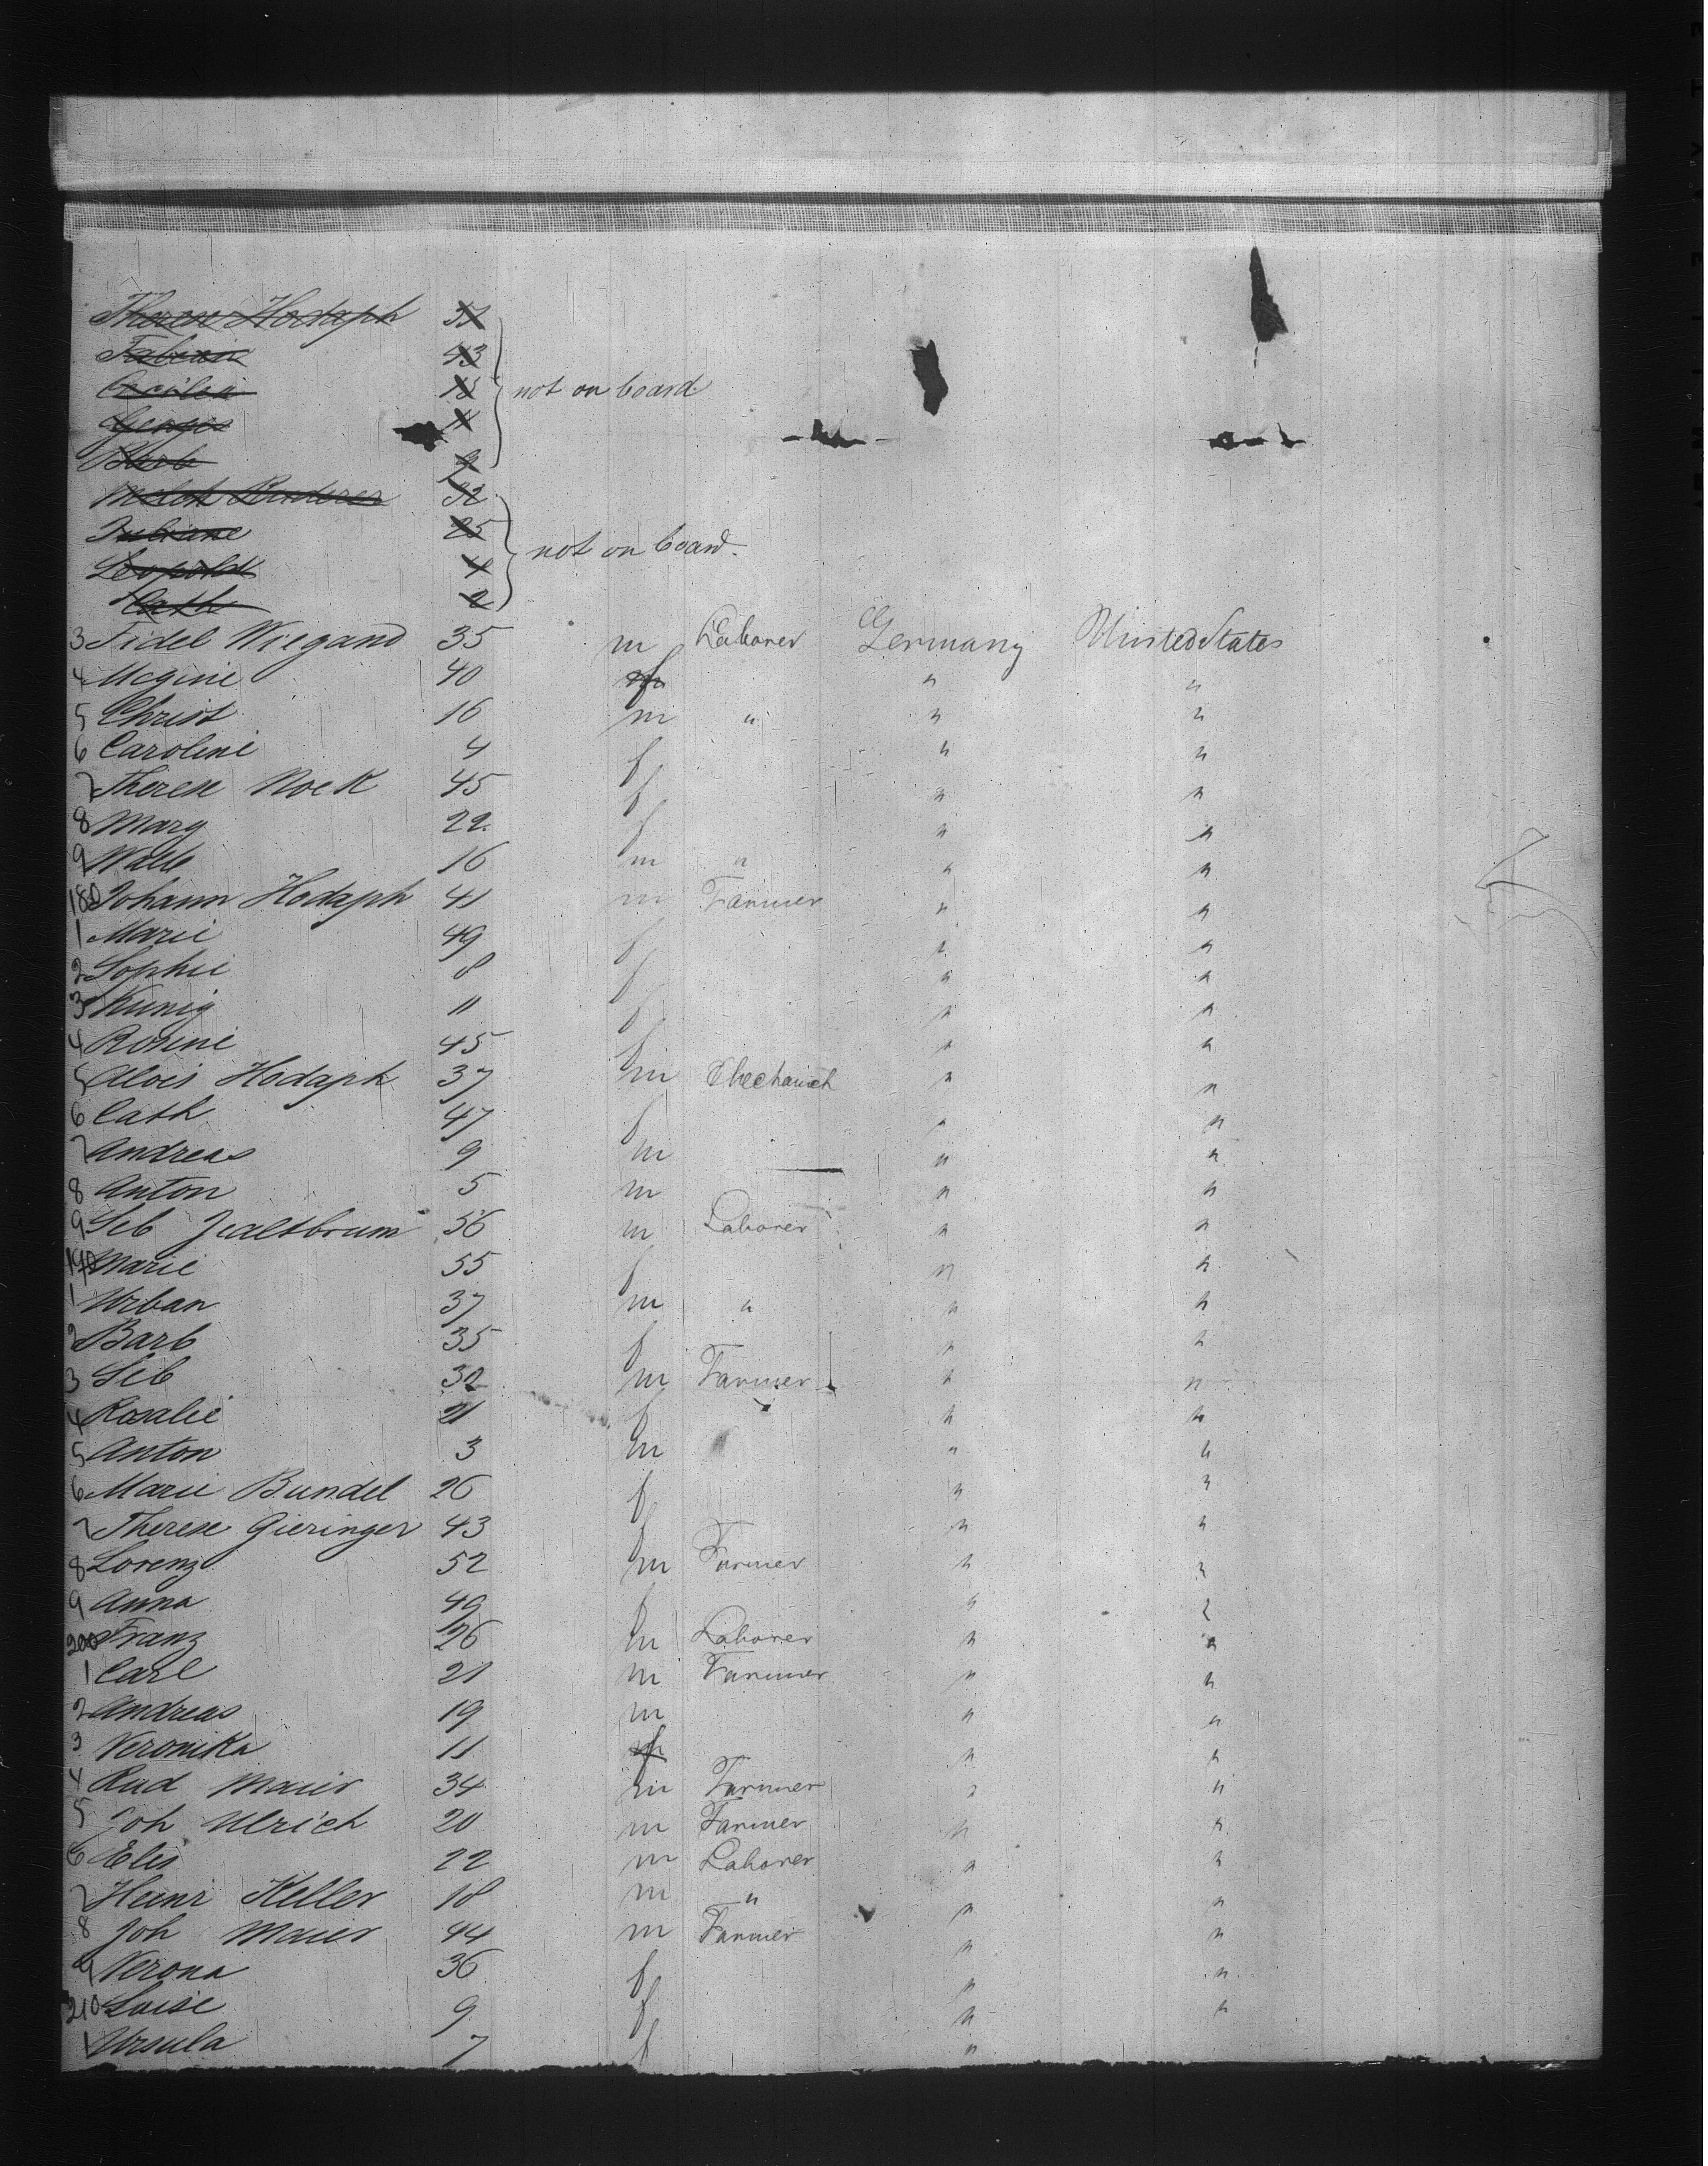 Therese Hodaph
Fabian 43
Cecilia 18 not on board
George 11
Barb 9
Melch Binderer 32
Juliane 25
Leopold 4 not on board.
Cath 2
3 Fidel Wiegand 35 m Laborer Germany United States
4 Regine 40 f " "
5 Christ 16 m " " "
6 Caroline 4 f " "
7 Therese Noek 45 f " "
8 Marg 22 f " "
9 Walb 16 m " " "
180 Johann Hodaph 41 m Farmer " "
1 Marie 49 f " "
2 Sophie 8 f " "
3 Kunig 11 f " "
4 Rosine 45 f " "
5 Alois Hodaph 37 m Mechanich " "
6 Cath 47 f " "
7 Andreas 9 m " "
8 Anton 5 m " "
9 Seb Jealtbrum 56 m Laborer " "
190 Marie 55 f " "
1 Urban 37 m " " "
2 Barb 35 f " "
3 Seb 32 m Farmer " "
4 Rosalie 21 f " "
5 Anton 3 m " "
6 Marie Bundel 26 f " "
7 Therese Gieringer 43 f " "
8 Lorenz 52 m Farmer " "
9 Anna 49 f " "
200 Franz 26 m Laborer " "
1 Carl 21 m Farmer " "
2 Andreas 19 m " "
3 Veronika 11 f " "
4 Rud Maier 34 m Farmer " "
5 Joh Ulrich 20 m Farmer " "
6 Elis 22 m Laborer " "
7 Heinr Keller 18 m " " "
8 Joh Maier 44 m Farmer " "
9 Verona 36 f " "
210 Luise 9 f " "
1 Ursula 7 f "